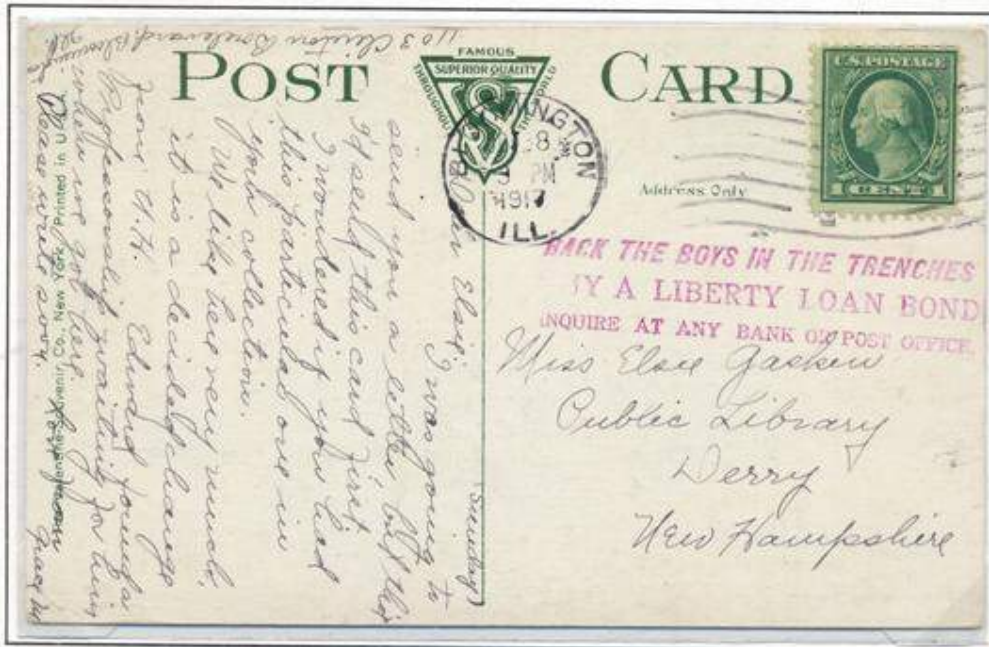 POST CARD
FAMOUS
SUPERIOR QUALITY
THROUGHOUT THE WORLD
BLOOMINGTON
8
PM
1917
ILL.
U.S. POSTAGE
1 CENT 1
Address Only
BACK THE BOYS IN THE TRENCHES
Y A LIBERTY LOAN BOND
INQUIRE AT ANY BANK OR POST OFFICE
Miss Elsie
Public Library
Derry
New Hampshire
1103 Clinton Boulevard, Bloomington
Ill.
Sunday
Dear Elsie, I was going to
send you a letter, but tho't
I'd send this card first.
I wondered if you had
this particular one in
your collection.
We like here very much,
it is a decided change
from N.H. Edward found a
Professorship waiting for him
when we got here.
Please write soon.
Grace M
Souvenir Co., New York. Printed in U.S.A.